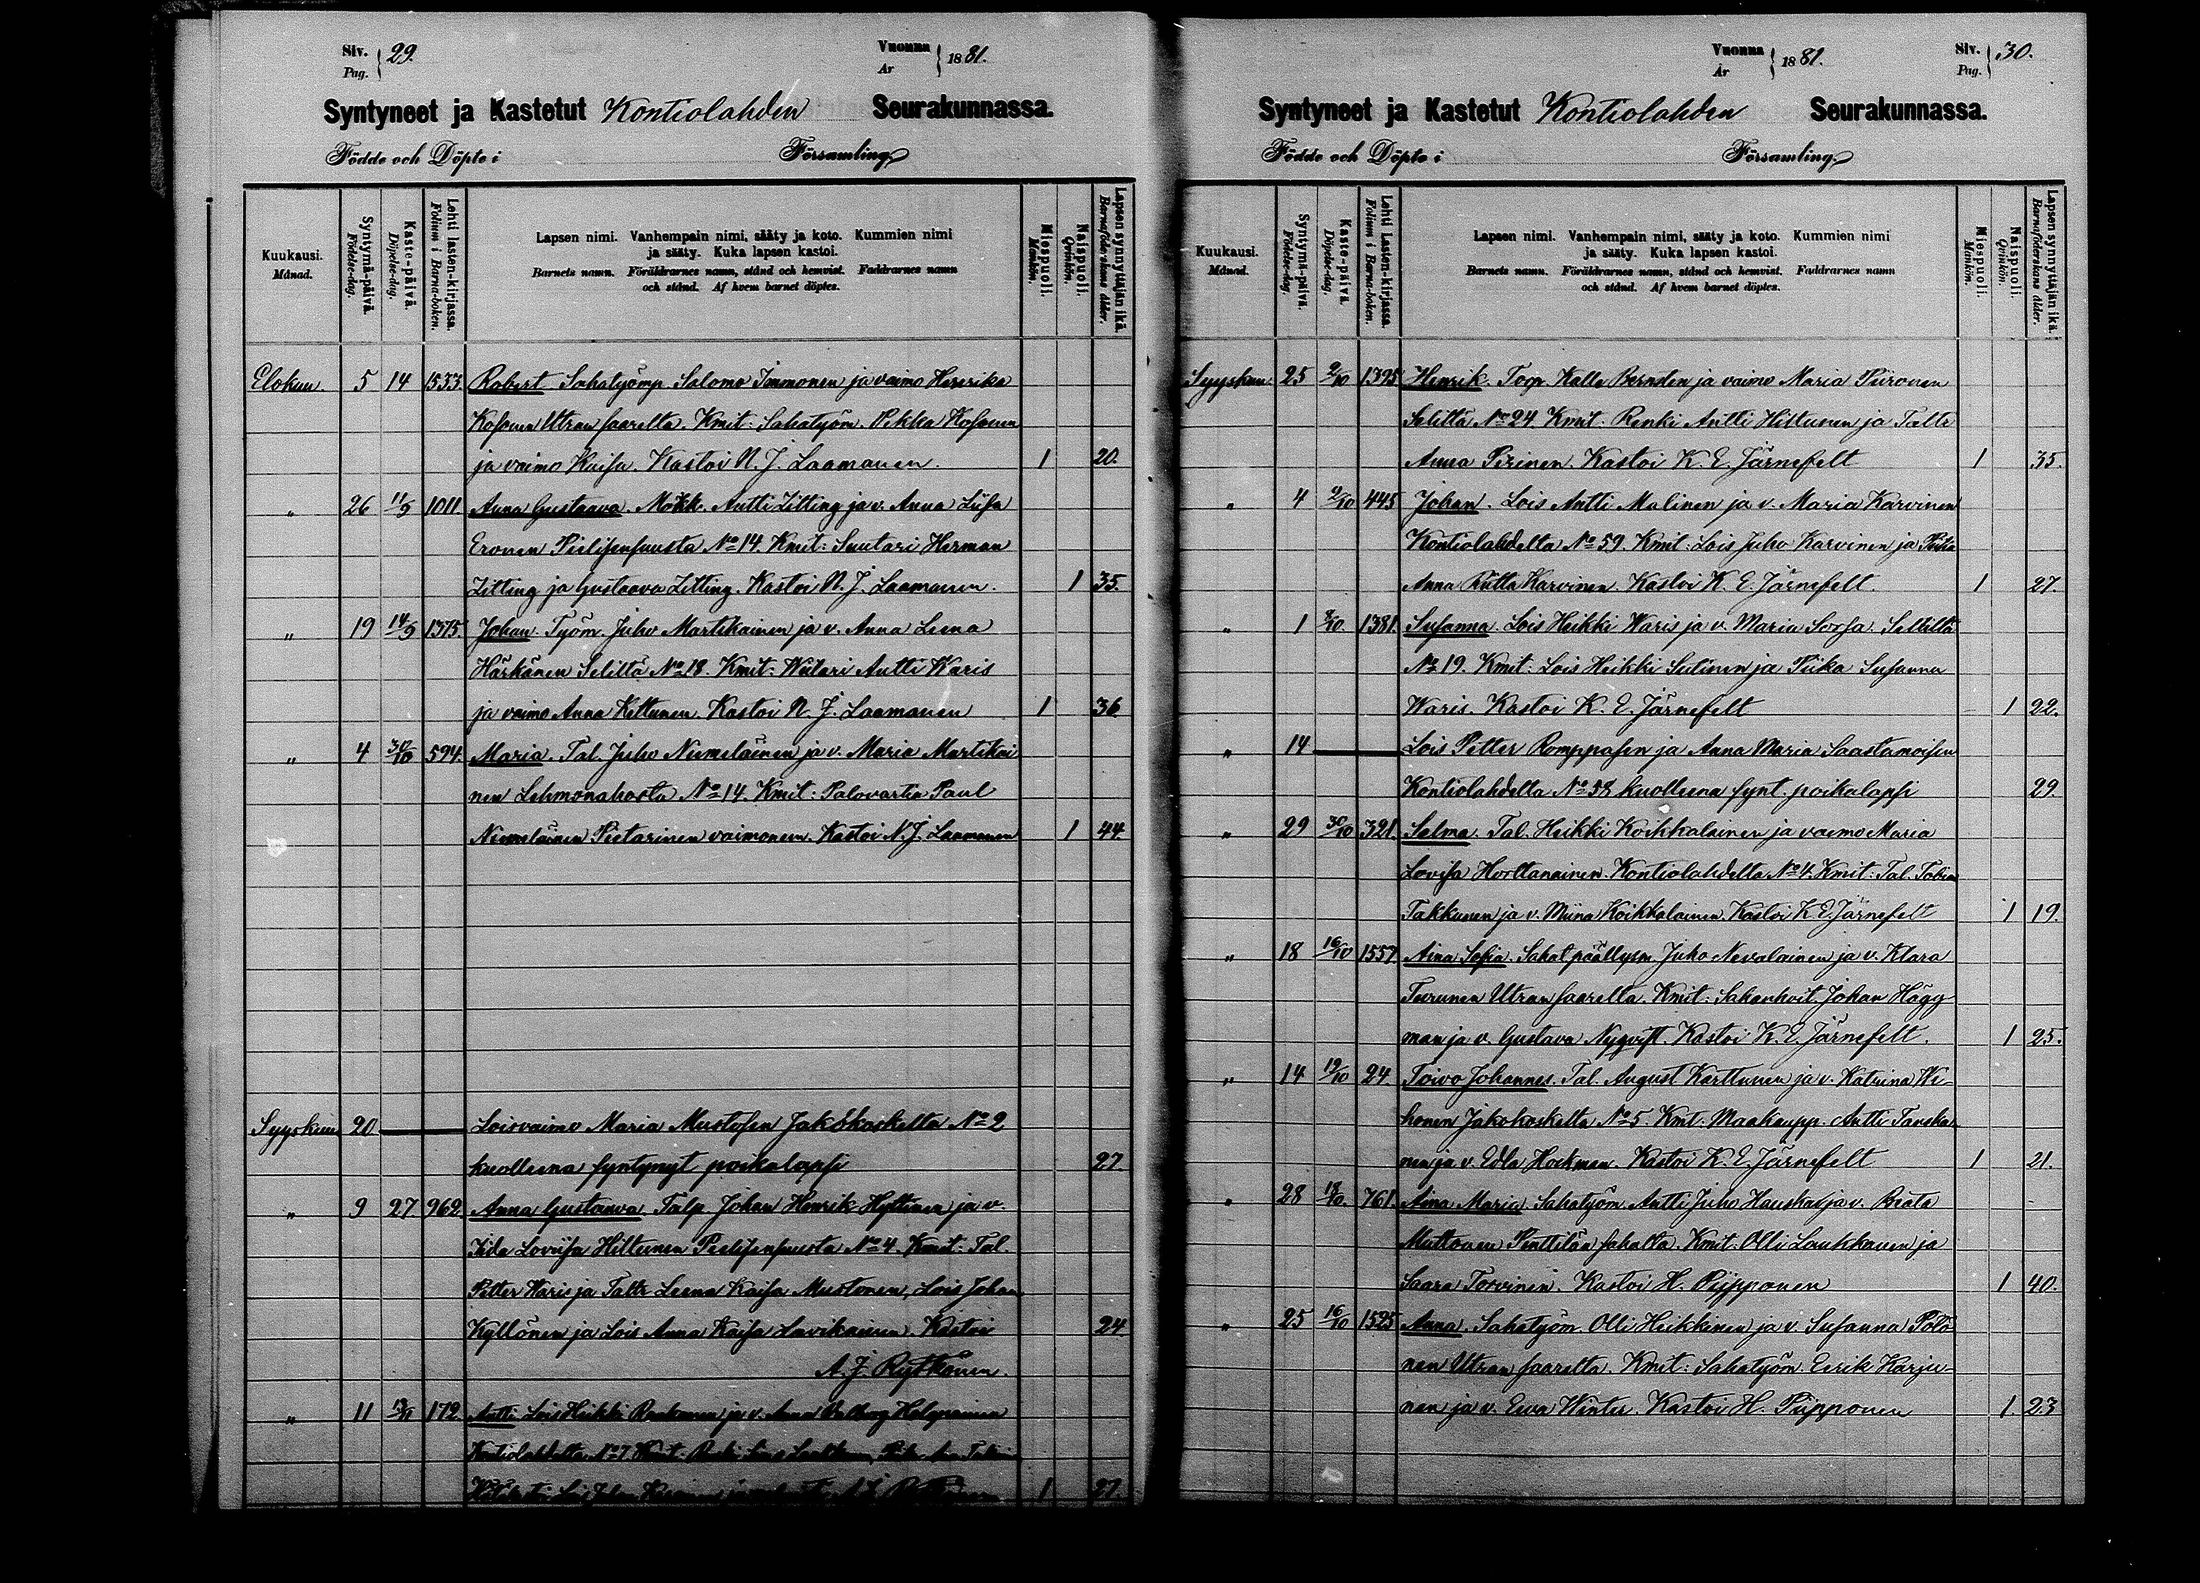 Siv. Pag. 29.
Vuonna År 1881.
Syntyneet ja Kastetut Kontiolahden Seurakunnassa.
Födde och Döpte i Församling
Kuukausi. Månad.
Syntymä-päivä. Födelse-dag.
Kaste-päivä. Döpelse-dag.
Lehti lasten-kirjassa. Folium i Barna-boken.
Lapsen nimi. Vanhempain nimi, sääty ja koto. Kummien nimi
ja sääty. Kuka lapsen kastoi.
Barnets namn. Föräldrarnes namn, stånd och hemvist. Faddrarnes namn
och stånd. Af hvem barnet döptes.
Miespuoli. Mankön.
Naispuoli. Qvinkön.
Lapsen synnyttäjän ikä. Barnaföderskans ålder.
Elokuu. 5 14 1533 Robert Sahatyömp Salomo Immonen ja vaimo Hererika
Kosonen Utran saarelta. Kmit: Sahatyöm. Pekka Kosonen
ja vaimo Kaisa. Kastoi N. J. Laamanen. 1 20.
" 26 11/9 1011 Anna Gustaava. Mökk. Antti Zitting ja v. Anna Liisa
Eronen Pielisensuusta No 14. Kmit: Suutari Herman
Zitting ja Gustaava Zitting. Kastoi N. J. Laamanen. 1 35.
" 19 14/9 1375 Johan. Työm. Juho Martikainen ja v. Anna Leena
Härkönen Seliltä No 18. Kmit: Wälari Antti Waris
ja vaimo Anna Kettunen. Kastoi N. J. Laamanen 1 36
" 4 30/10 594. Maria. Tal. Juho Niemeläinen ja v. Maria Martikai
nen Lehmonahosta No 14. Kmit: Palovartia Paul
Niemeläinen Pietarinen vaimoneen. Kastoi N. J. Laamanen 1 44
Syyskuu 20 Loisvaimo Maria Mustosen Jakokoskelta No 2
kuolleena syntynyt poikalapsi 27
" 9 27 962 Anna Gustaava Talp Johan Henrik Hyttinen ja v.
Iida Loviisa Hiltunen Pielisensuusta No 4. Kmit: Tal.
Petter Waris ja Taltr Leena Kaisa Mustonen, Lois Johan
Kyllönen ja Lois Anna Kaisa Lavikainen. Kastoi 24
A. J. Rytkönen.
" 11 172 Antti Lois Heikki ja v. Anna
Kontiolahdelta No 7. Kmit:
1 27
Vuonna År 1881.
Siv. Pag. 30.
Syntyneet ja Kastetut Kontiolahden Seurakunnassa.
Födde och Döpte i Församling.
Kuukausi. Månad.
Syntymä-päivä. Födelse-dag.
Kaste-päivä. Döpelse-dag.
Lehti Lasten-kirjassa. Folium i Barna-boken.
Lapsen nimi. Vanhempain nimi, sääty ja koto. Kummien nimi
ja sääty. Kuka lapsen kastoi.
Barnets namn. Föräldrarnes namn, stånd och hemvist. Faddrarnes namn
och stånd. Af hvem barnet döptes.
Miespuoli. Mankön.
Naispuoli. Qvinkön.
Lapsen synnyttäjän ikä. Barnaföderskans ålder.
Syyskuu 25 2/10 1395 Henrik. Torp. Kalle Berndén ja vaimo Maria Piironen
Seliltä No 24. Kmit: Renki Antti Hiltunen ja Taltr
Anna Pirinen. Kastoi K. E. Järnefelt 1 35.
" 4 2/10 445 Johan. Lois Antti Malinen ja v. Maria Karvinen
Kontiolahdelta No 59. Kmit: Lois Juho Karvinen ja Piika
Anna Riitta Karvinen. Kastoi K. E. Järnefelt. 1 27.
" 1 2/10 1381. Susanna. Lois Heikki Waris ja v. Maria Sorsa. Seliltä
No 19. Kmit: Lois Heikki Sutinen ja Piika Susanna
Waris. Kastoi K. E. Järnefelt 1 22.
" 14 Lois Petter Romppasen ja Anna Maria Saastamoisen
Kontiolahdelta No 58 kuolleena synt. poikalapsi 29
" 29 30/10 321. Selma. Tal. Heikki Koikkalainen ja vaimo Maria
Lovisa Horttanainen. Kontiolahdelta No 4. Kmit: Tal. Tobias
Takkunen ja v. Miina Koikkalainen. Kastoi K. E. Järnefelt 1 19.
" 18 16/10 1557 Aina Sofia. Sahat päällysm Juho Nevalainen ja v. Klara
Turunen Utran saarelta. Kmit: Sahanhoit. Johan Hägg
man ja v. Gustava Nyqvist. Kastoi K. E. Järnefelt. 1 25.
" 14 19/10 24 Toivo Johannes. Tal. August Karttunen ja v. Katrina Wi-
honen Jakokoskelta No 5. Kmt. Maakaupp. Antti Tanska
nen ja v. Edla Hockman. Kastoi K. E. Järnefelt 1 21.
" 28 18/10. 761. Aina Maria. Sahatyöm. Antti Juho Hauska ja v. Beata
Muttonen Penttilän sahalta. Kmit: Olli Laukkanen ja
Saara Torvinen. Kastoi H. Piipponen 1 40.
" 25 16/10 1525 Anna. Sahatyöm. Olli Heikkinen ja v. Susanna Pölö
nen Utran saarelta. Kmit: Sahatyöm. Eerik Karju-
nen ja v. Eewa Winter. Kastoi H. Piipponen 1. 23